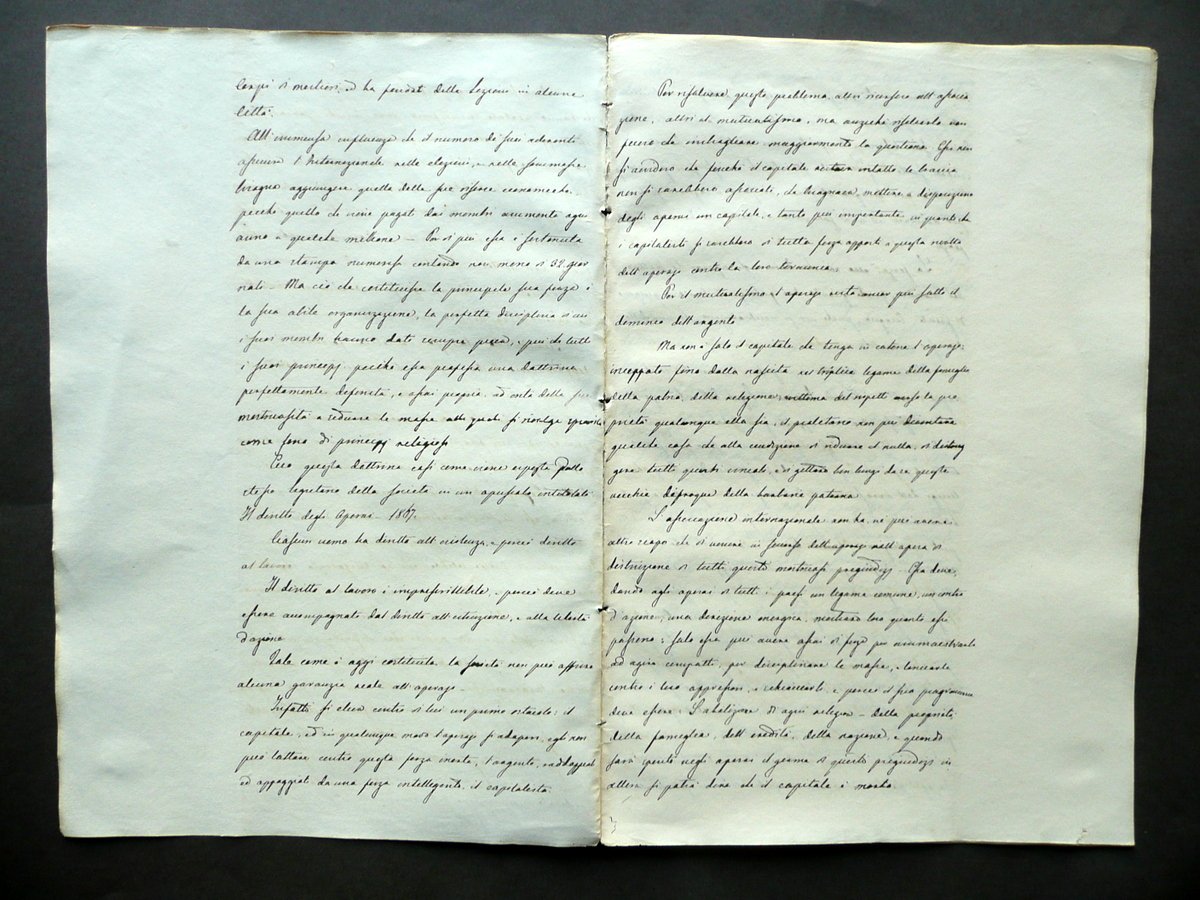 Corpi di mestieri, ed ha fondat delle Sezioni in alcune
città.
All'immensa influenza che il numero de' suoi aderenti
assicura l'Internazionale nelle elezioni, e nelle masse
bisogna aggiungere quella delle sue risorse economiche,
perché quello che viene pagat dai membri aumenta ogni
anno a qualche milione — Per di più essa è sostenuta
da una stampa numerosa contando non meno di 32 gior
nali — Ma ciò che costituisce la principale sua forza è
la sua abile organizzazione, la perfetta disciplina di cui
i suoi membri hanno dato sempre prova, e più di tutto
i suoi principj perché essa professa una dottrina
perfettamente definita, e assai propria, ad onta della sua
mostruosità a sedurre le masse alle quali si rivolge
come sono di principj religiosi
Ecco questa dottrina così come viene esposta dallo
stesso segretario della società in un opuscolo intitolato
Il diritto degli Operai — 1867.
Ciascun uomo ha diritto all'esistenza, e perciò diritto
al lavoro
Il diritto al lavoro è imprescrittibile, e perciò deve
essere accompagnato dal diritto all'istruzione, e alla libertà
d'azione
Tale come è oggi costituita la società non può offrire
alcuna garanzia reale all'operajo —
Infatti si eleva contro di lui un primo ostacolo: il
capitale, ed in qualunque modo l'operajo si adoperi, egli non
può lottare contro questa forza inerte, l'argento,
ed appoggiat da una forza intelligente, il capitalista.
Per risolvere questo problema, altri ricorsero all'associa
zione, altri al mutualismo, ma anziché risolverlo non
fecero che imbrogliare maggiormente la questione. Essi non
si avvidero che finché il capitale restava intatto, le braccia
non si sarebbero associate, che bisognava mettere a disposizione
degli operai un capitale, e tanto più importante, in quanto che
i capitalisti si sarebbero di tutta forza opposti a questa rivolta
dell'operajo contro la loro tirannia
Per il mutualismo l'operajo resta ancor più sotto il
dominio dell'argento
Ma non è solo il capitale che tenga in catene l'operajo:
inceppato fino dalla nascita nel triplice legame della famiglia
della patria, della religione, vittima del rispetto verso la pro
prietà qualunque ella sia, il proletario non può diventare
qualche cosa che alla condizione di ridurre al nulla, di distrug
gere tutti questi vincoli, e di gettare ben lungi da se questa
vecchia della barbarie pagana
L'associazione internazionale non ha, né può avere
altro scopo che di venire in soccorso dell'operajo nell'opera di
distruzione di tutti questi mostruosi pregiudizj — Essa deve,
dando agli operai di tutti i paesi un legame comune, un centro
d'azione, una direzione energica, mostrare loro quanto essi
possono; sola essa può avere assai di forza per ammaestrarli
ad agire compatti, per disciplinare le masse, e lanciarle
contro i loro oppressori, e schiacciarli, e perciò il suo programma
deve essere: L'abolizione di ogni religione — della proprietà
della famiglia, dell'eredità, della nazione, e quando
sarà spento negli operai il germe di questi pregiudizj in
allora si potrà dire che il capitale è morto.